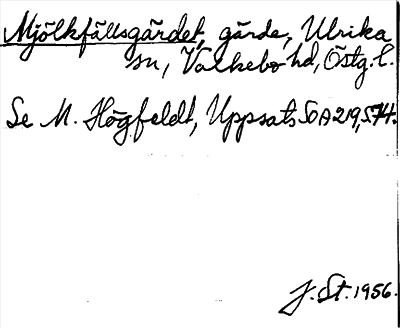 Mjölkfållsgärdet, gärde, Ulrika
sn, Valkebo hd, Östg. l.
Se M. Högfeldt, Uppsats SOA 219, S74.
J. St. 1956.